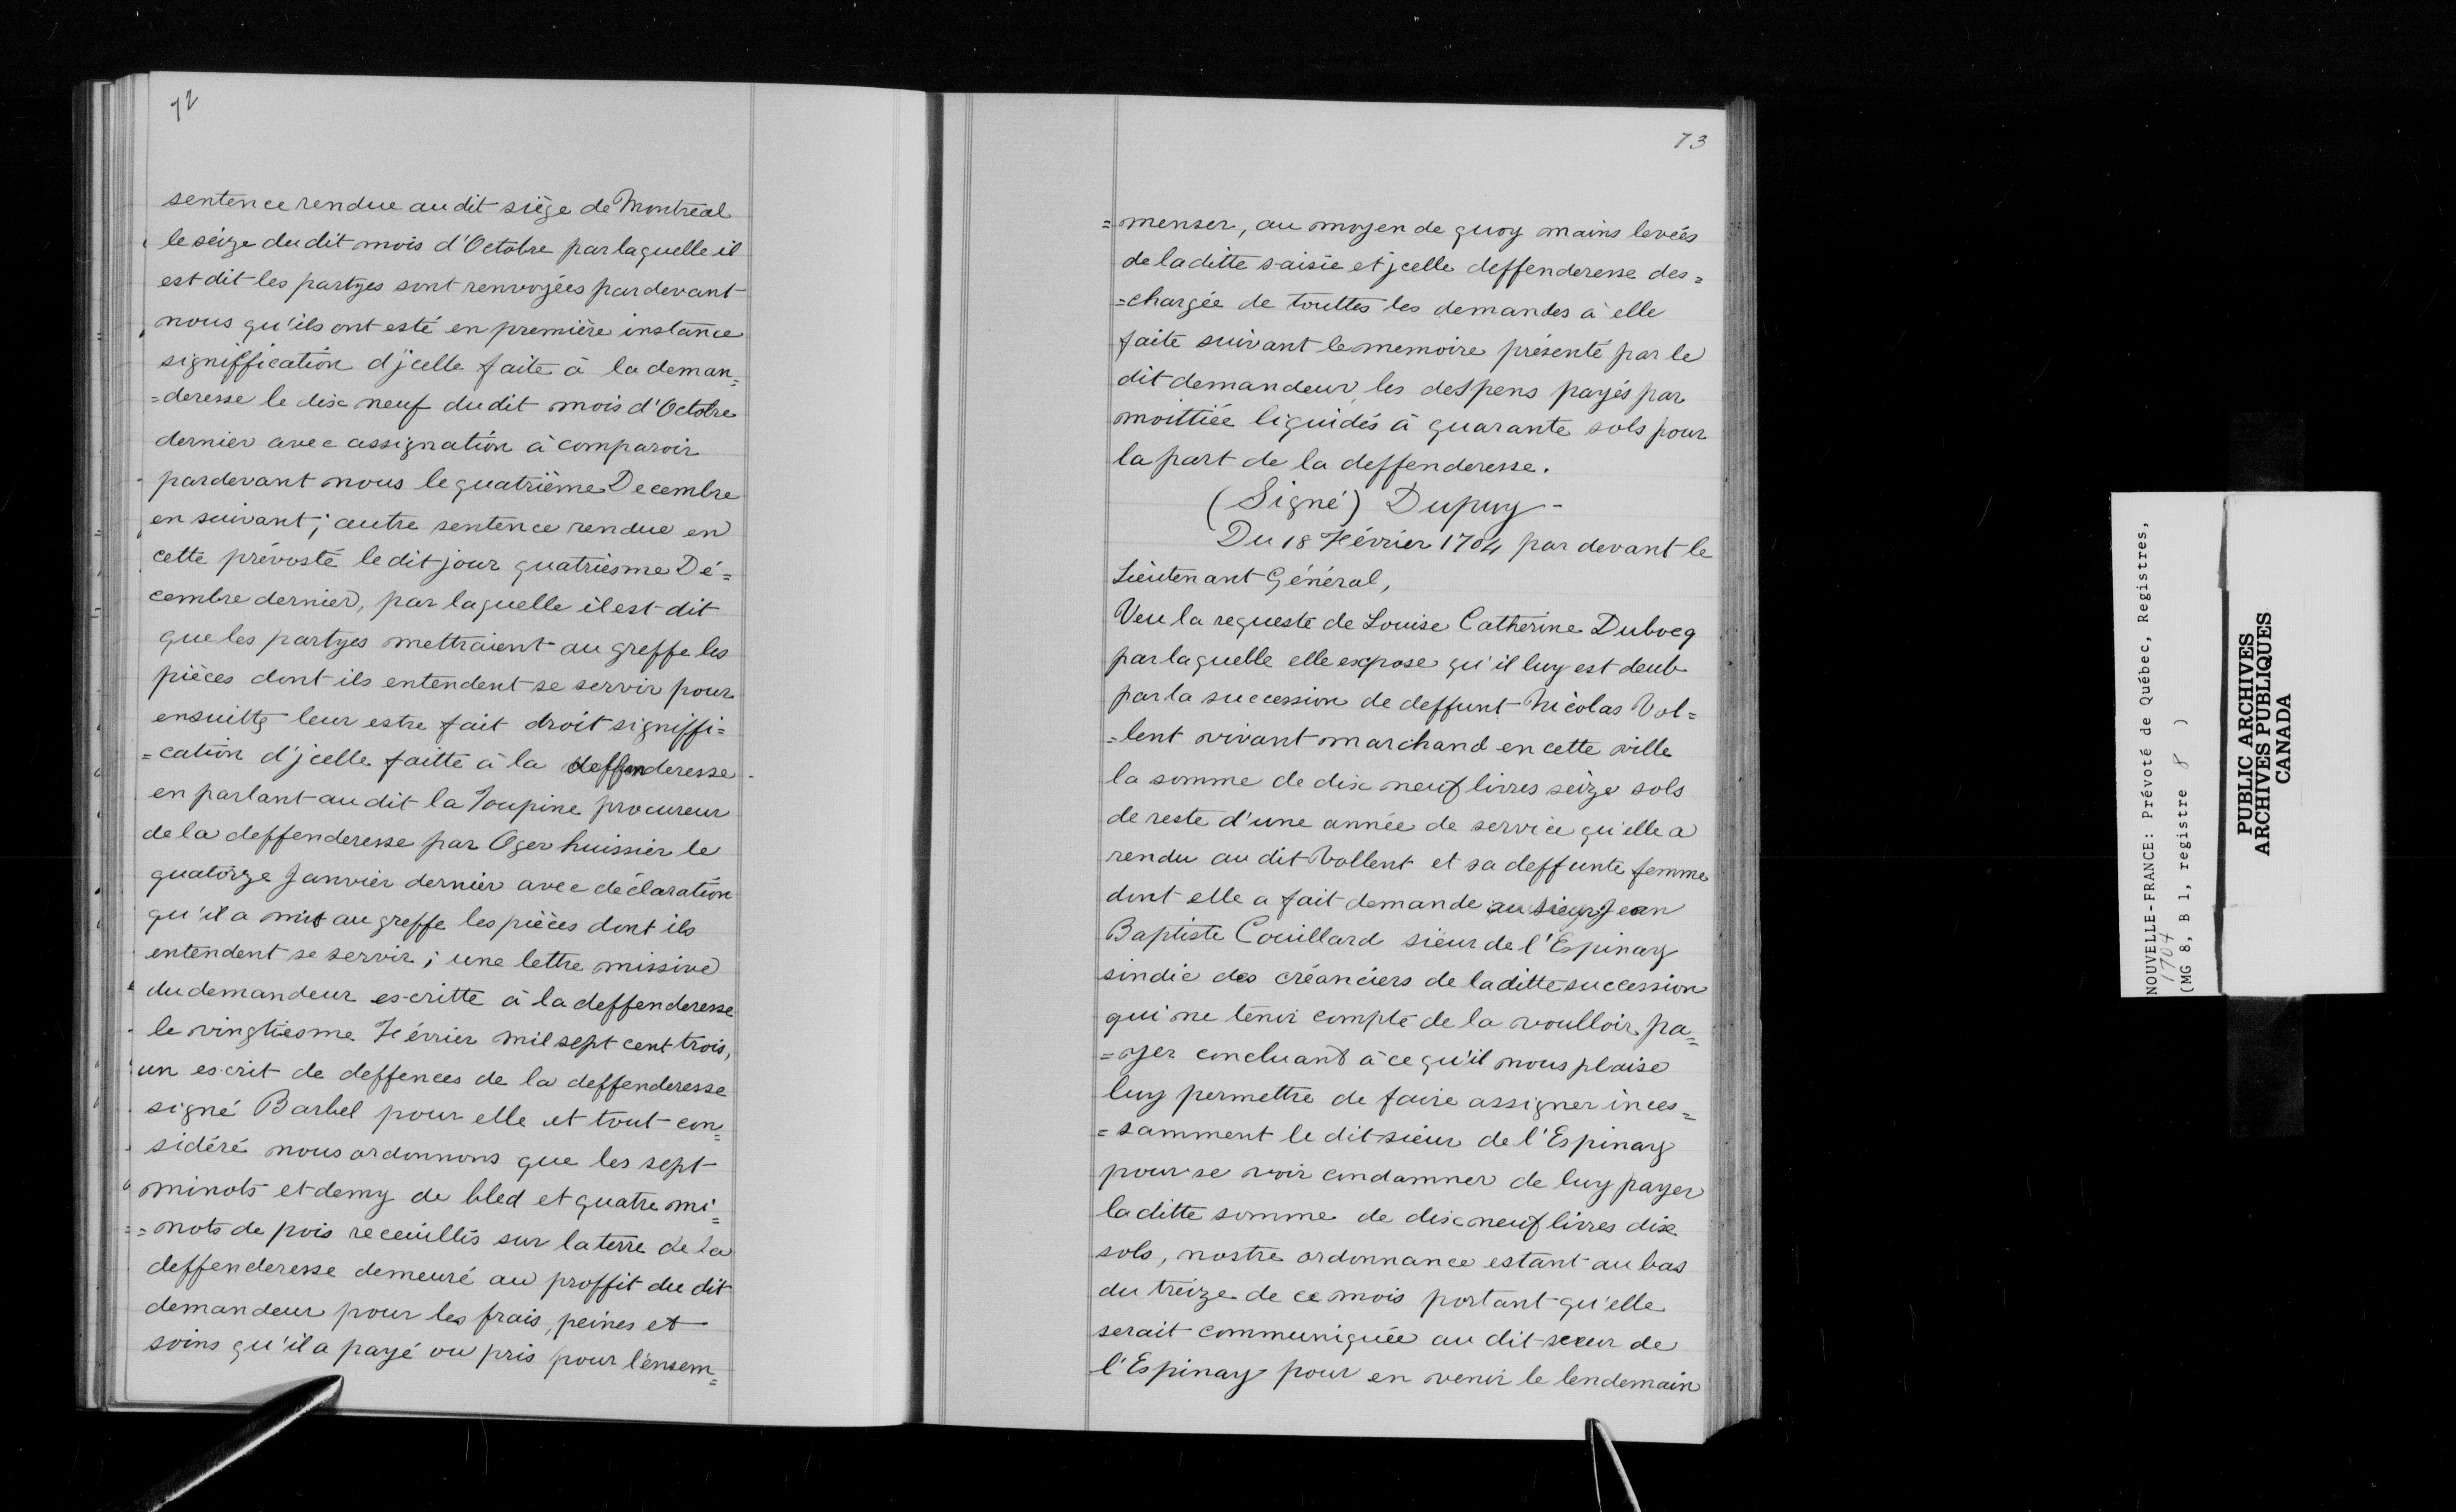 72
sentence rendue au dit siège de Montréal
le seize du dit mois d'Octobre par laquelle il
est dit les partyes sont renvoyées pardevant
nous qu'ils ont esté en première instance
signiffication d'jcelle faite à la deman=
=deresse le dix neuf du dit mois d'Octobre
dernier avec assignation à comparoir
pardevant nous le quatrième Decembre
en suivant; autre sentence rendue en
cette prévosté le dit jour quatriesme Dé=
cembre dernier, par laquelle il est dit
que les partyes mettraient au greffe les
pièces dont ils entendent se servir pour
ensuitte leur estre fait droit signiffi=
=cation d'jcelle faitte à la deffenderesse
en parlant au dit la Toupine procureur
de la deffenderesse par Oger huissier le
quatorze Janvier dernier avec déclaration
qu'il a mis au greffe les pièces dont ils
entendent se servir; une lettre missive
du demandeur escritte à la deffenderesse
le vingtiesme Février mil sept cent trois,
un escrit de deffences de la deffenderesse
signé Barbel pour elle et tout con=
sidéré nous ordonnons que les sept
minots et demy de bled et quatre mi=
=nots de pois receuillis sur la terre de la
deffenderesse demeuré au proffit du dit
demandeur pour les frais, peines et
soins qu'il a payé ou pris pour l'ensem=
73
=menser, au moyen de quoy mains levées
de la ditte saisie et jcelle deffenderesse des=
=chargée de touttes les demandes à elle
faite suivant le memoire présenté par le
dit demandeur, les despens payés par
moittiée liquidés à quarante sols pour
la part de la deffenderesse.
(Signé) Dupuy -
Du 18 Février 1704 par devant le
Lieutenant Général,
Veu la requeste de Louise Catherine Dubocq
par laquelle elle expose qu'il luy est deub
par la succession de deffunt Nicolas Vol=
=lent vivant marchand en cette ville
la somme de dix neuf livres seize sols
de reste d'une année de service qu'elle a
rendu au dit Vollent et sa deffunte femme
dont elle a fait demande au sieur Jean
Baptiste Couillard sieur de l'Espinay
sindic des créanciers de la ditte succession
qui ne tenir compte de la voulloir pa=
=yer concluant à ce qu'il nous plaise
luy permettre de faire assigner inces=
=samment le dit sieur de l'Espinay
pour se voir condamner de luy payer
la ditte somme de dix neuf livres dix
sols, nostre ordonnance estant au bas
du treize de ce mois portant qu'elle
serait communiquée au dit sieur de
l'Espinay pour en venir le lendemain
NOUVELLE-FRANCE: Prévoté de Québec, Registres,
1704
(MG 8, B 1, registre 8 )
PUBLIC ARCHIVES
ARCHIVES PUBLIQUES
CANADA